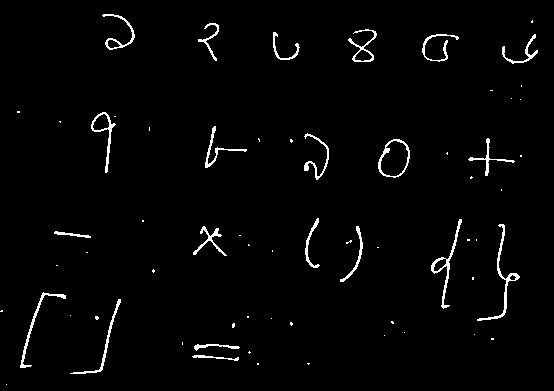 ১ ২ ৩ ৪ ৫ ৬
৭ ৮ ৯ ০ +
- × ( ) { }
[ ] =